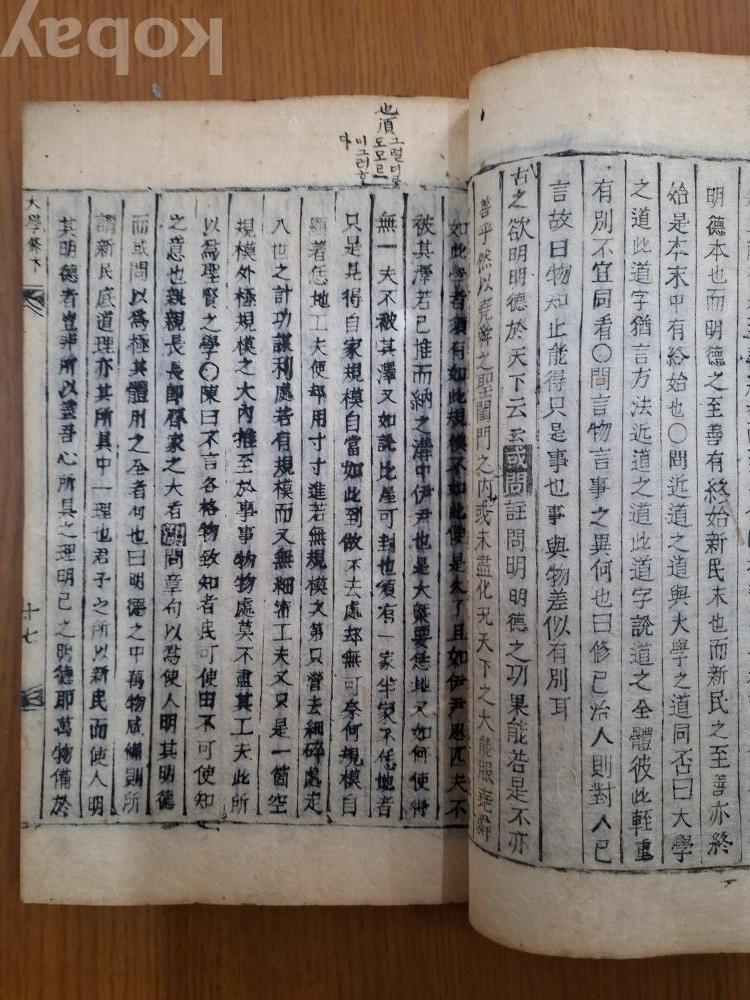 明德本也而明德之至善有終始新民末也而新民之至善亦終
始是本末中有終始也○問近道之道與大學之道同否曰大學
之道此道字猶言方法近道之道此道字說道之全體彼此輕重
有別不宜同看○問言物言事之異何也曰修己治人則對人己
言故曰物知止能得只是事也事與物差似有別耳
古之欲明明德於天下云云或問註問明明德之功果能若是不亦
善乎然以堯舜之聖閨門之內或未盡化況天下之大能服堯舜
如此學者須有如此規模不如此便是欠了且如伊尹思匹夫不
被其澤若己推而納之溝中伊尹也是大槩要恁地又如何使得
無一夫不被其澤又如說比屋可封也須有一家半家不恁地者
只是見得自家規模自當如此到做不去處却無可奈何規模自
顯著恁地工夫便却用寸寸進若無規模次第只管去細碎處定
入世之計功謀利處若有規模而又無細密工夫又只是一箇空
規模外極規模之大內推至於事事物物處莫不盡其工夫此所
以爲聖賢之學○陳曰不言各格物致知者民可使由不可使知
之意也親親長長卽齊家之大者 問章句以爲使人明其明德
而或問以爲極其體用之全者何也曰明德之中萬物咸備則所
謂新民底道理亦其所具中一理也君子之所以新民而使人明
其明德者豈非所以盡吾心所具之理明己之明德耶萬物備於
也須
그럴
도모르
미그러
다
大學 下
十七
kobay